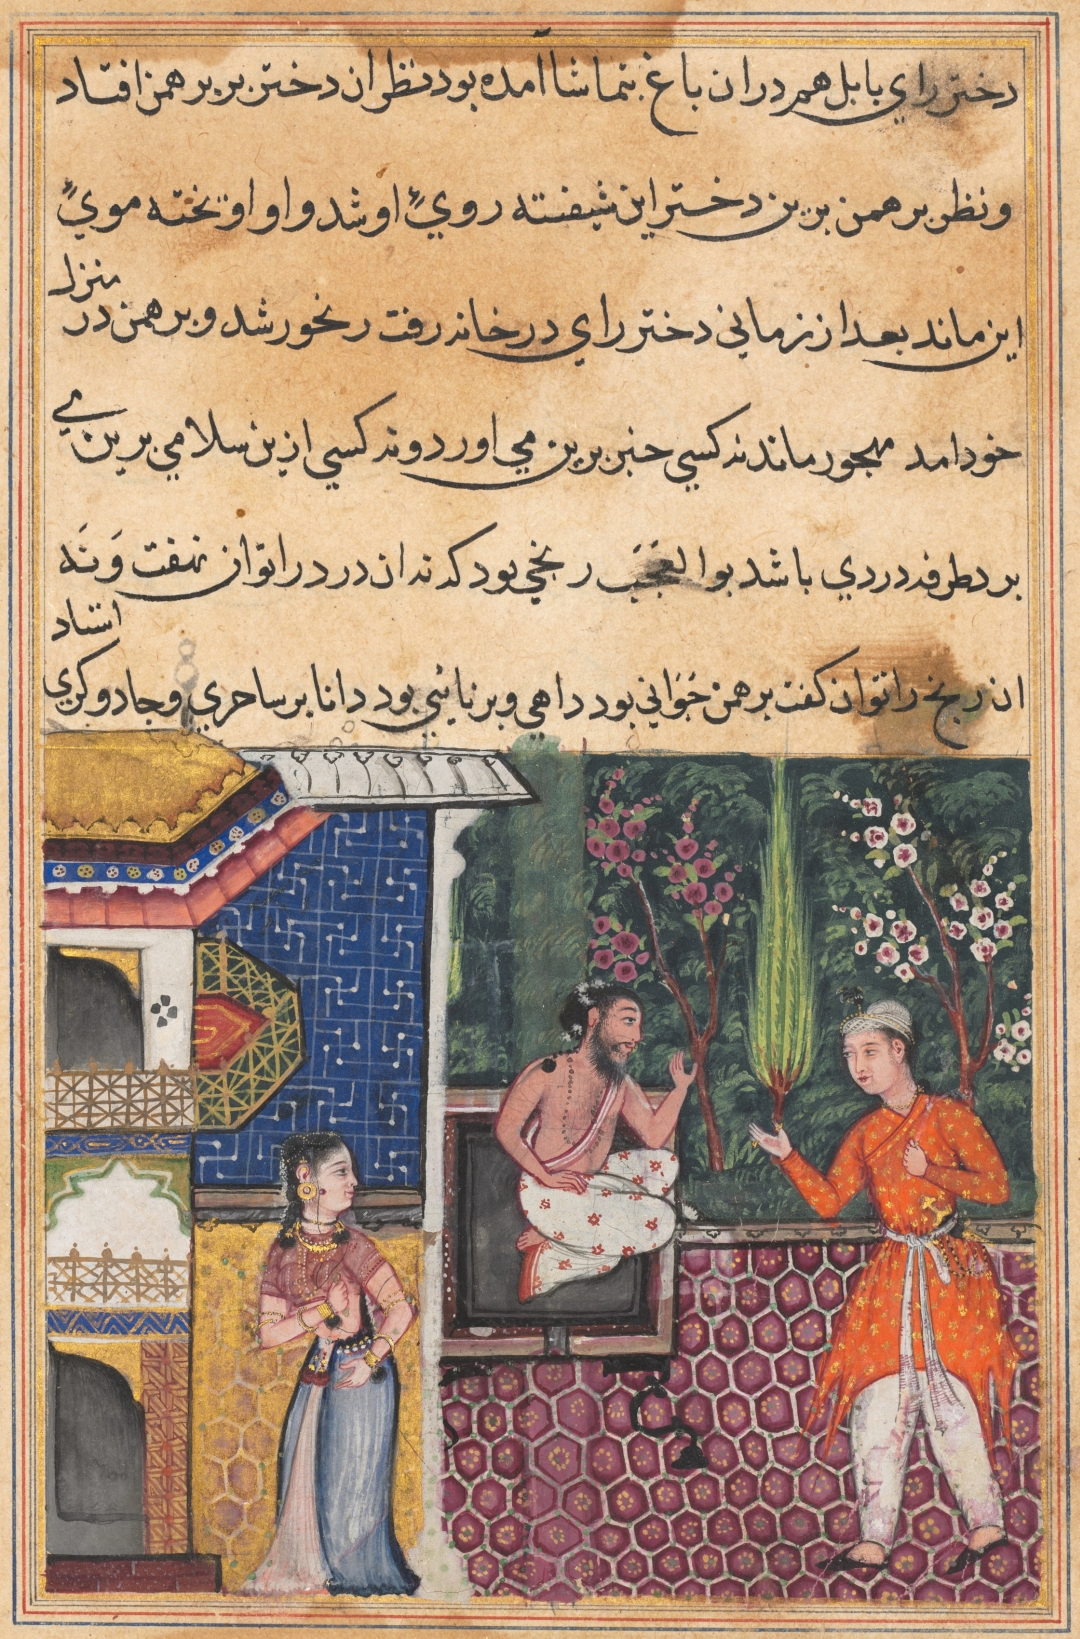 دختر راي بابل هم در ان باغ بتماشا امده بود نظر ان دختر بر برهمن افتاد
و نظر برهمن برين دختر اين شيفته روئ او شد و او اويخته موئ
اين ماند بعد از زماني دختر راي در خانه رفت رنجور شد و برهمن در منزل
خود امد مهجور ماند نه كسي خبر برين مي اورد و نه كسي ازين سلامي برين مي
برد طرفه دردي باشد بوالعجب رنجي بود كه نه ان درد را توان نهفت و نه
ان رنج را توان كفت برهمن جواني بود داهي و برنائي بود دانا بر ساحري و جادوكري استاد